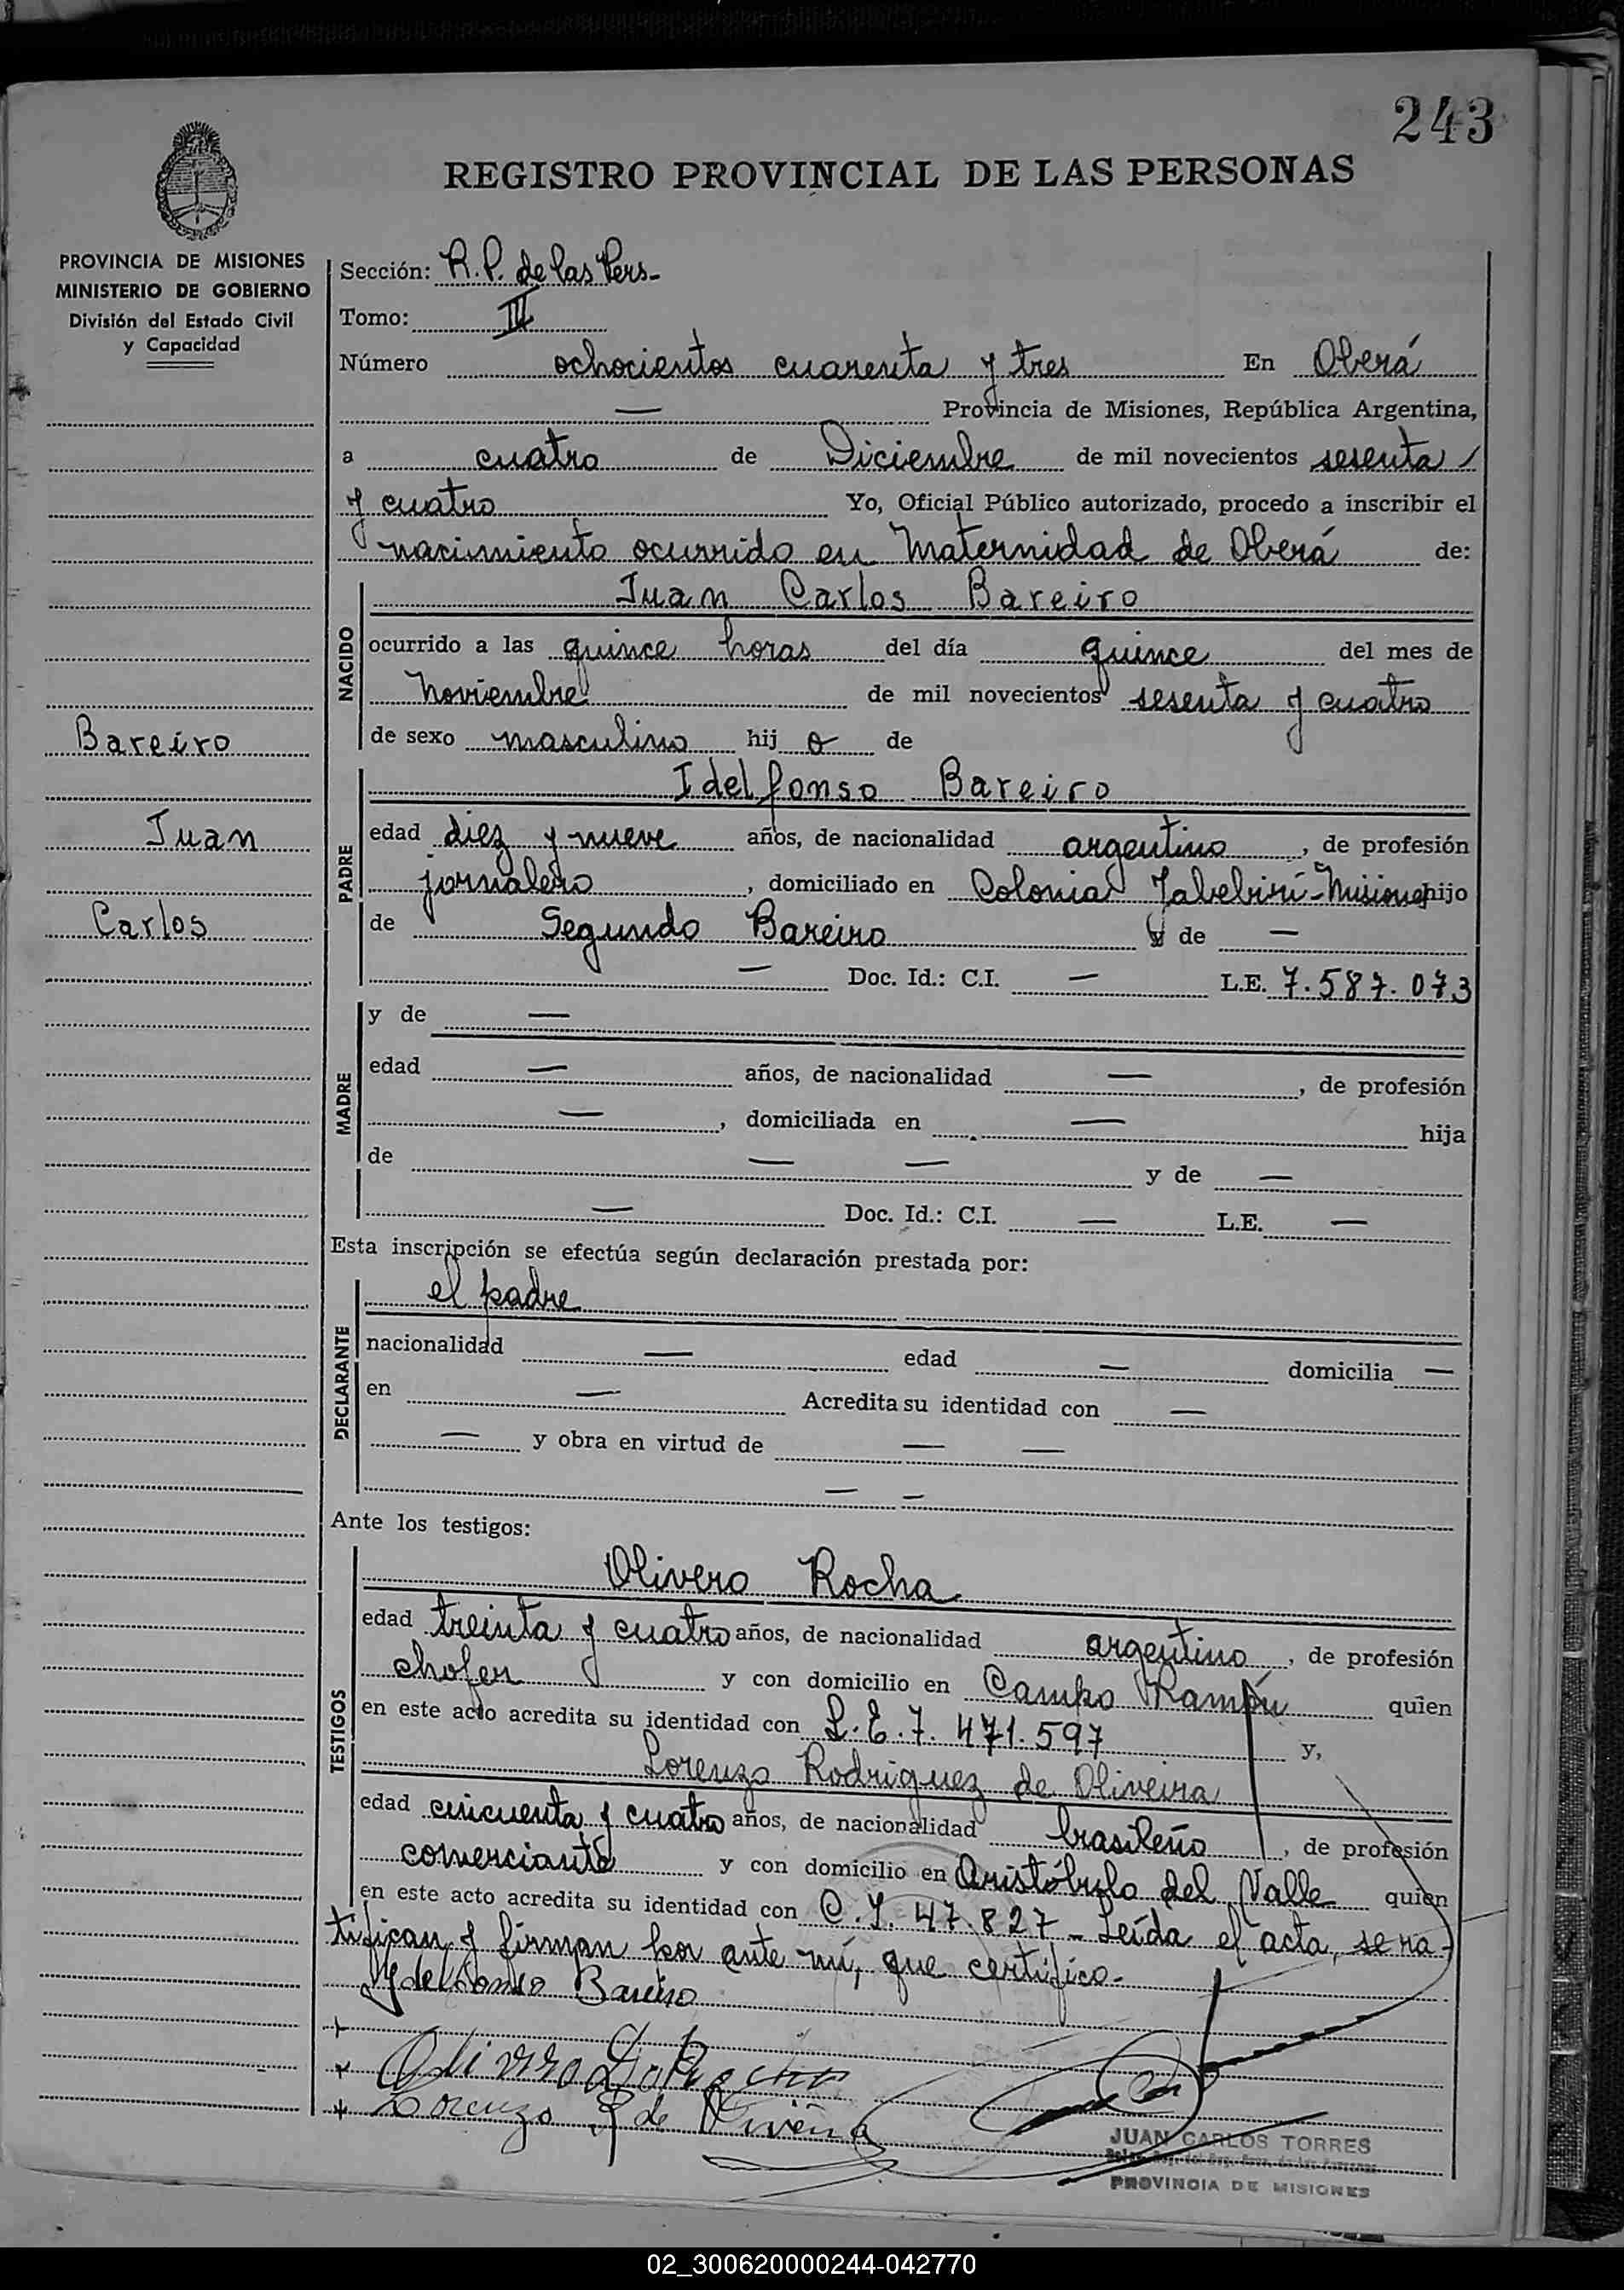 243
REGISTRO PROVINCIAL DE LAS PERSONAS
PROVINCIA DE MISIONES
MINISTERIO DE GOBIERNO
División del Estado Civil
y Capacidad
Sección: R. P. de las Pers-
Tomo: III
Número ochocientos cuarenta y tres En Oberá
— Provincia de Misiones, República Argentina,
a cuatro de Diciembre de mil novecientos sesenta /
y cuatro Yo, Oficial Público autorizado, procedo a inscribir el
nacimiento ocurrido en Maternidad de Oberá de:
Juan Carlos Bareiro
NACIDO
ocurrido a las quince horas del día quince del mes de
Noviembre de mil novecientos sesenta y cuatro
de sexo masculino hij o de
Bareiro
Juan
Carlos
Idelfonso Bareiro
PADRE
edad diez y nueve años, de nacionalidad argentino, de profesión
jornalero, domiciliado en Colonia Yabebirí-Misiones hijo
de Segundo Bareiro y de —
— Doc. Id.: C.I. — L.E. 7.587.073
MADRE
y de —
edad — años, de nacionalidad —, de profesión
—, domiciliada en — hija
de — — y de —
— Doc. Id.: C.I. — L.E. —
Esta inscripción se efectúa según declaración prestada por:
DECLARANTE
el padre
nacionalidad — edad — domicilia —
en — Acredita su identidad con —
— y obra en virtud de — —
— —
Ante los testigos:
TESTIGOS
Olivero Rocha
edad treinta y cuatro años, de nacionalidad argentino, de profesión
chofer y con domicilio en Campo Ramón quien
en este acto acredita su identidad con L.E. 7.471.597 y,
Lorenzo Rodriguez de Oliveira
edad cincuenta y cuatro años, de nacionalidad brasileño, de profesión
comerciante y con domicilio en Aristóbulo del Valle quien
en este acto acredita su identidad con C.I. 47.827 - Leída el acta, se ra-
tifican y firman por ante mí, que certifico-
Ydelfonso Bareiro
Lorenzo R de Oliveira
JUAN CARLOS TORRES
PROVINCIA DE MISIONES
02_300620000244-042770